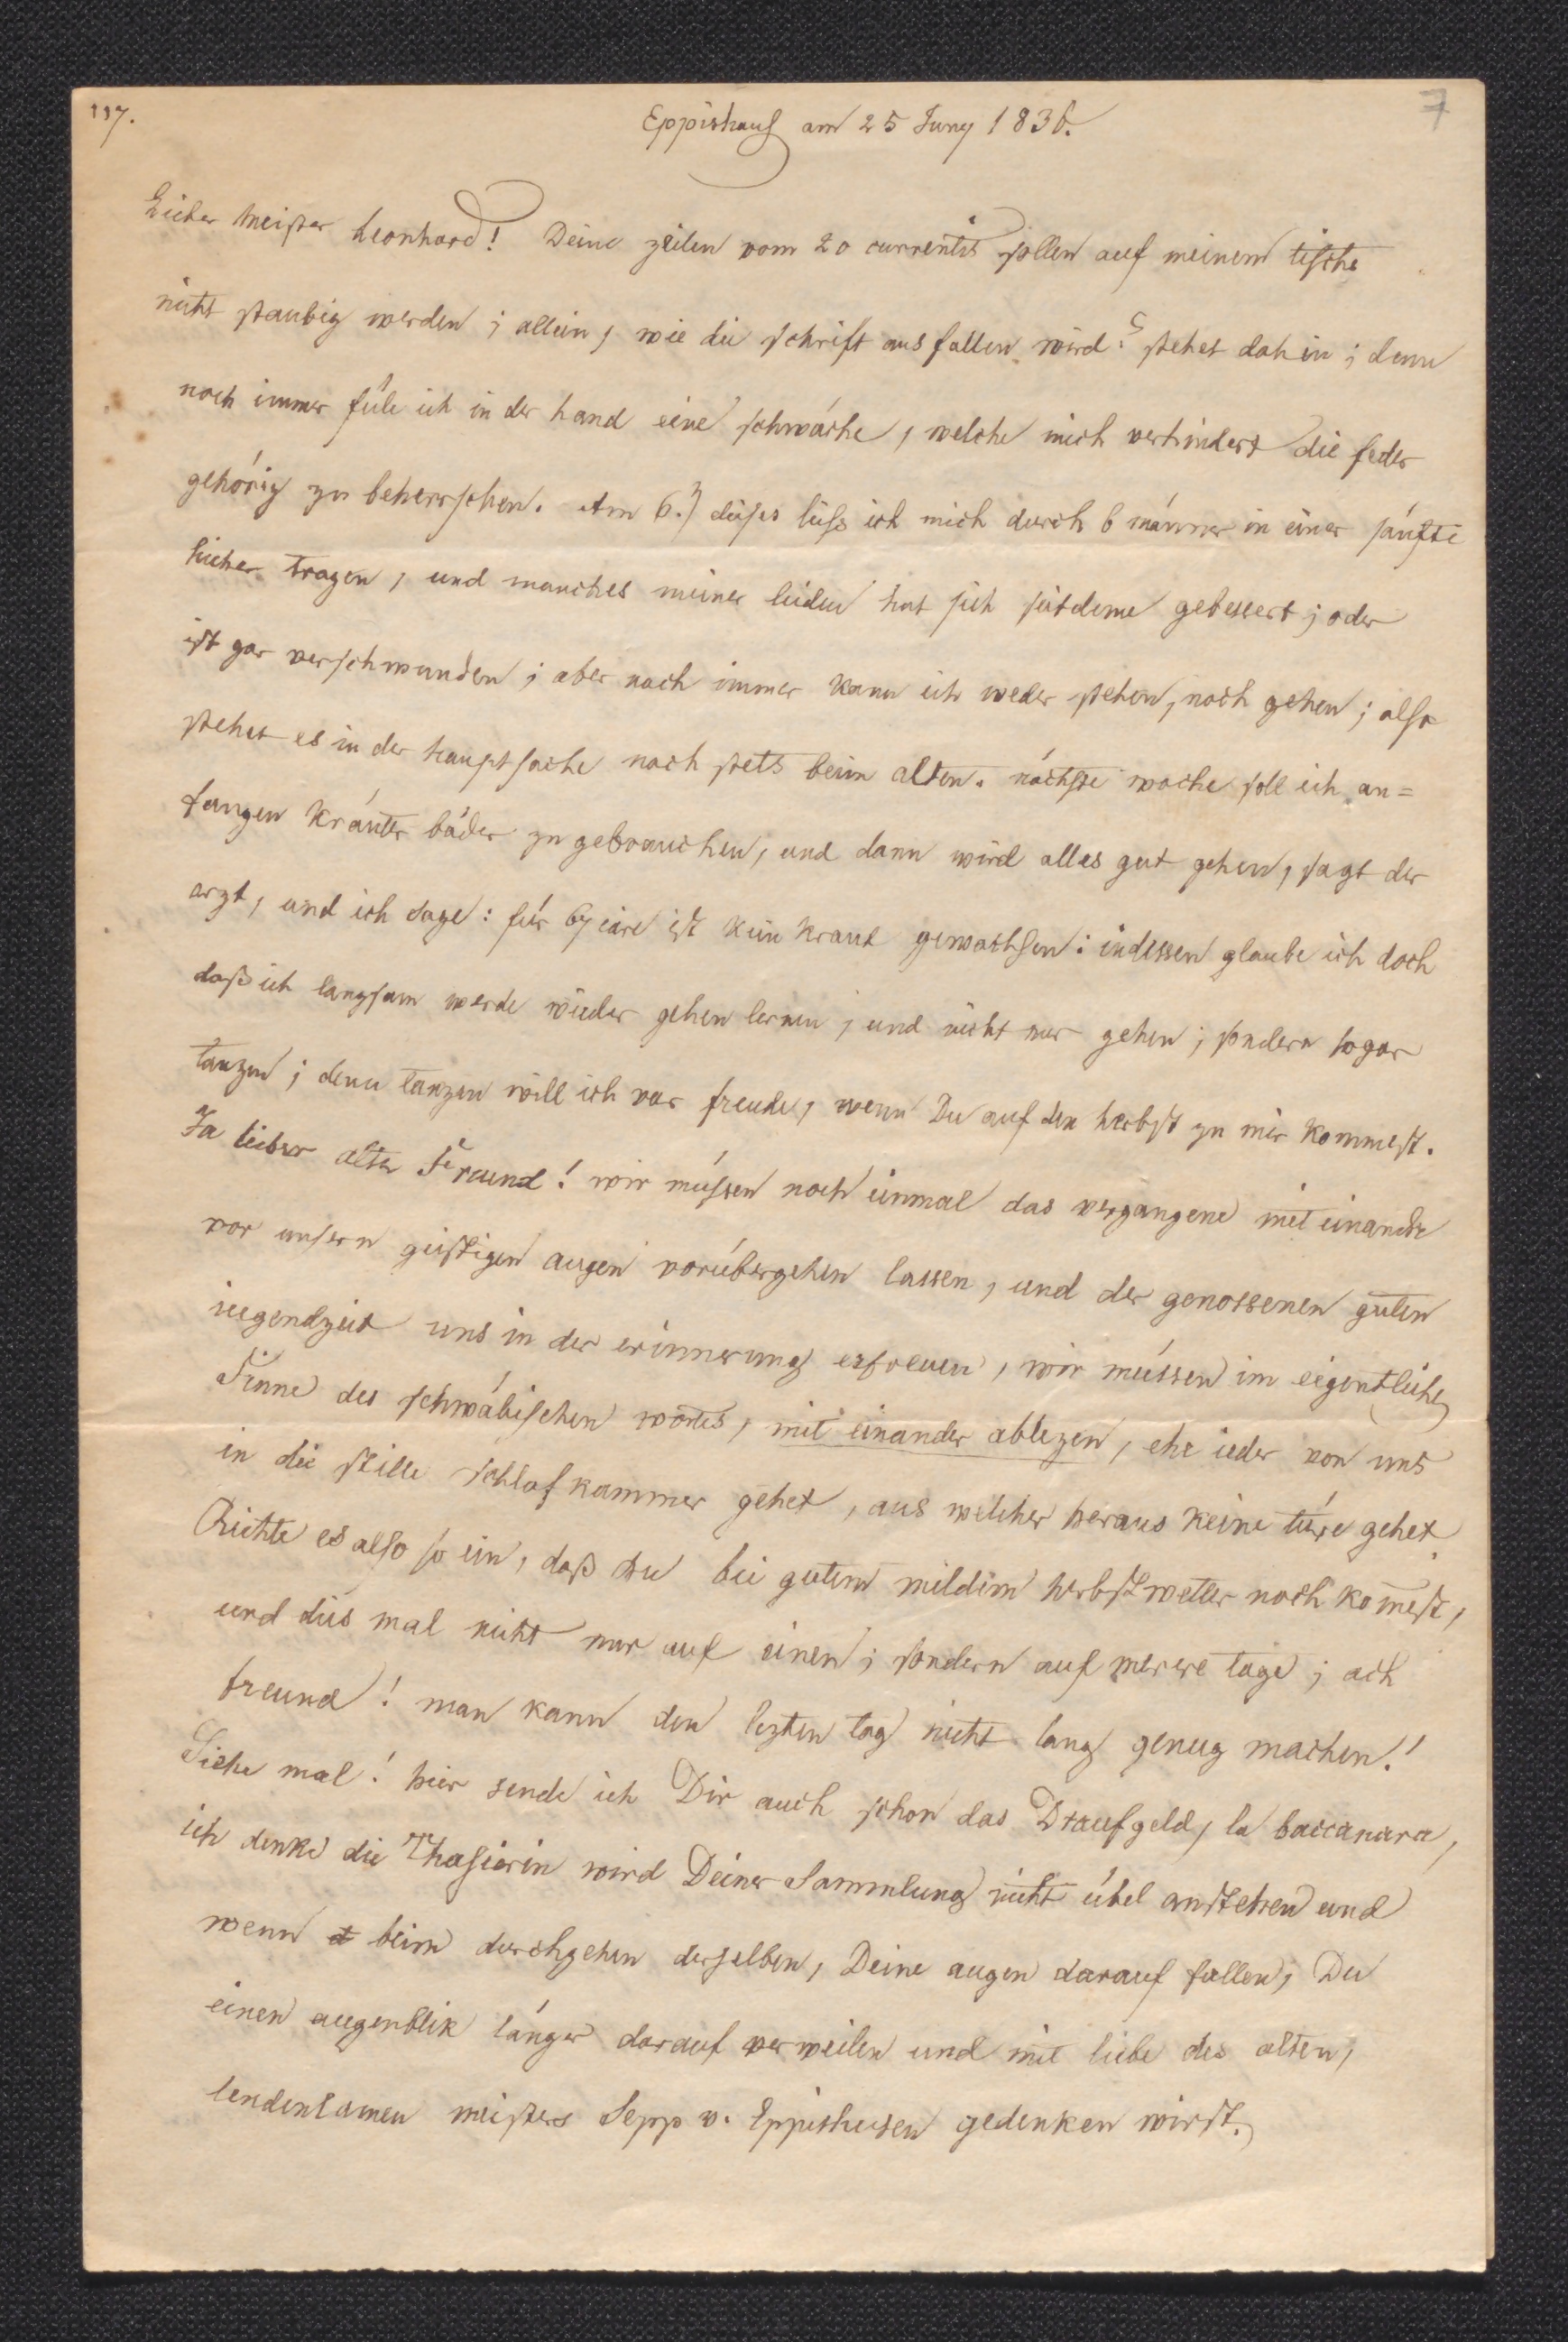 117.
7
Eppishaus am 25 Juny 1836.
Lieber Meister Leonhard! Deine zeilen vom 20 currentis sollen auf meinem tische
nicht staubig werden; allein, wie die schrift ausfallen wird? stehet dahin; denn
noch immer füle ich in der hand eine schwäche, welche mich verhindert die feder
gehörig zu beherrschen. Am 6.) dieses liess ich mich durch 6 männer in einer sänfte
hieher tragen, und manches meiner leiden hat sich seitdeme gebessert; oder
ist gar verschwunden; aber noch immer kann ich weder stehen, noch gehen; also
stehet es in der hauptsache noch stets beim alten. nächste woche soll ich an=
fangen kräuter bäder zu gebrauchen, und dann wird alles gut gehen, sagt der
arzt, und ich sage: für 67 iare ist kein kraut gewachsen: indessen glaube ich doch
daß ich langsam werde wieder gehen lernen; und nicht nur gehen; sondern sogar
tanzen; denn tanzen will ich vor freude, wenn Du auf den herbst zu mir kommest.
Ja lieber alter Freund! wir müssen noch einmal das vergangene mit einander
vor unsern geistigen augen vorübergehen lassen, und der genossenen guten
iugendzeit uns in der erinnerung erfreuen, wir müssen im eigentliche
Sinne des schwäbischen wortes, mit einander ablezen, ehe ieder von uns
in die stille schlafkammer gehet, aus welcher heraus keine türe gehet.
Richte es also so ein, daß Du bei gutem mildem herbstwetter noch kom̄est,
und dies mal nicht nur auf einen; sondern auf merere tage; ach
freund! man kann den lezten tag nicht lang genug machen!
Siehe mal! hier sende ich Dir auch schon das Draufgeld, la baccanara,
ich denke die Thasierin wird Deiner Sammlung nicht übel anstehen und
wenn beim durchgehen derselben, Deine augen darauf fallen, Du
einen augenblik länger darauf verweilen und mit liebe des alten,
lendenlamen meisters Sepp v. Eppishusen gedenken wirst.